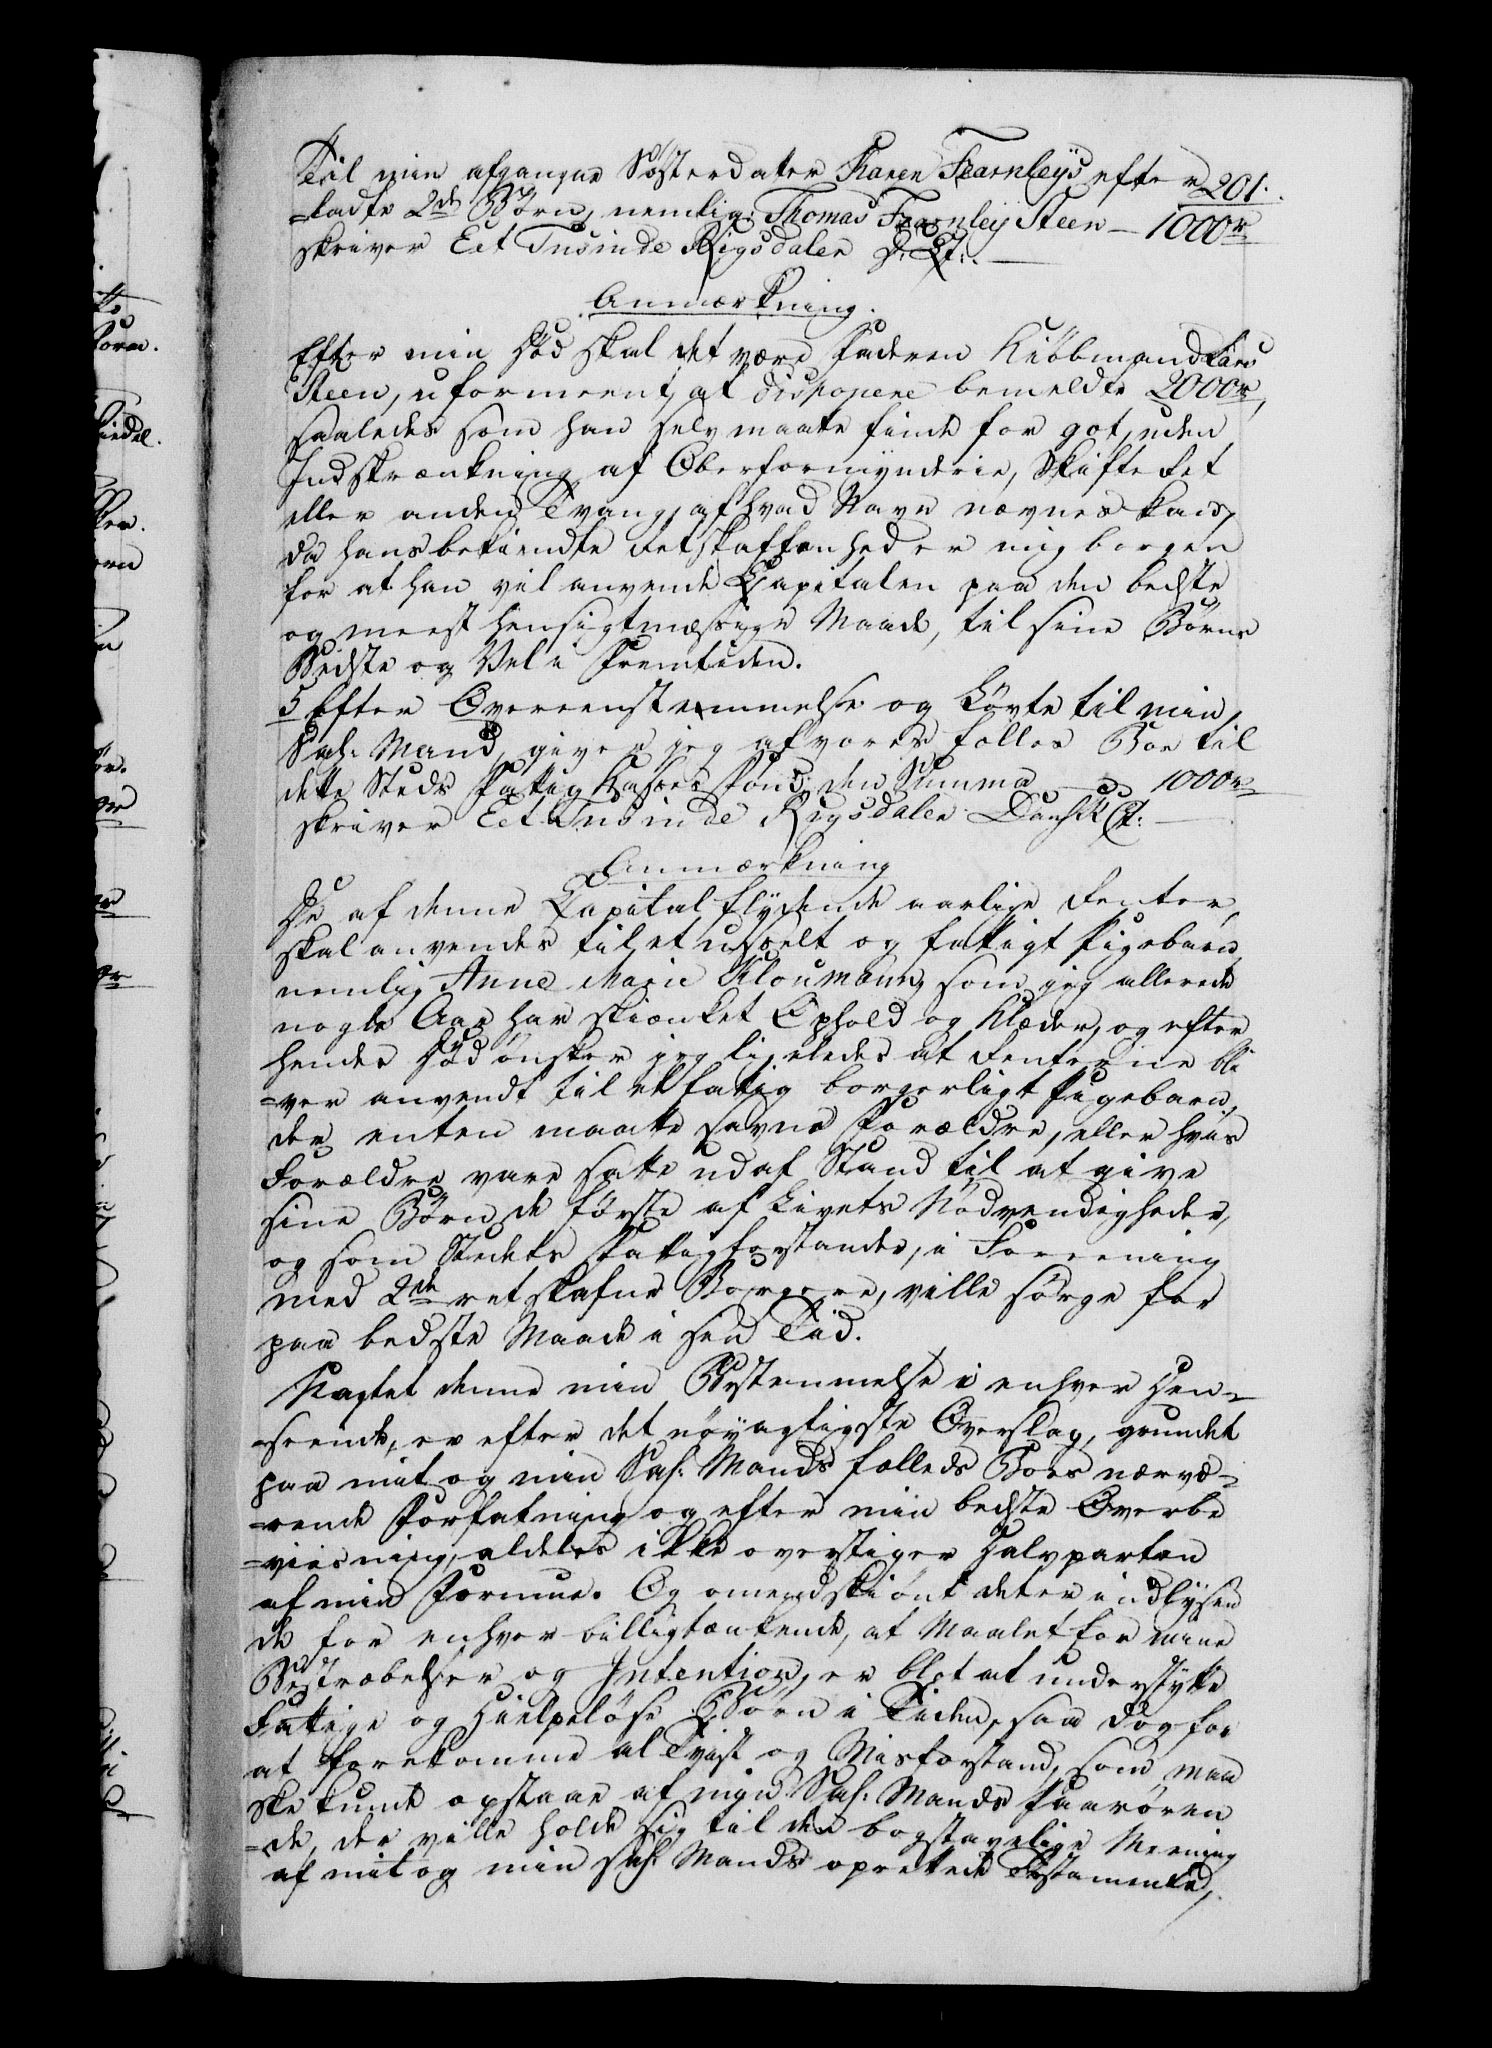 201.
Til min afgangne Søsterdater Karen Fearnleys efter
=ladte 2de Børn, nemlig: Thomas Fearnley Steen — 1000r
skriver Eet Tusinde Rigsdaler D: Ct:
Anmærkning.
Efter min Død skal det være Faderen Kiøbmand Lars
Steen, uformeent, at disponere bemeldte 2000r,
saaledes som han selv maatte finde for got, uden
Indskrænkning af Oberformynderie, Skifte Ret
eller anden Tvang, af hvad Navn nævnes kand,
da hans bekiendte Retskaffenhed er mig borgen
for at han vil anvende Capitalen paa den bedste
og meest hensigtmæssige Maade, til sine Børns
Bedste og Vel i Fremtiden.
5 Efter Overeenstemmelse og Løvte til min
Sal: Mand, giver jeg af vores fælles Boe til
dette Steds Fattig Kasses Fond, den Summa — 1000r
skriver Eet Tusinde Rigsdaler Dansk Ct:
Anmærkning
De af denne Capital flydende aarlige Renter,
skal anvendes til et usselt og fattigt Pigebarn
nemlig Anne Marie Kloumann, som jeg allerede
nogle Aar har skiænket Ophold og Klæder, og efter
hendes Død ønsker jeg ligeledes at Renterne bli
=ver anvendt til et fattig borgerligt Pigebarn,
der enten maatte savne Forældre, eller hvis
Forældre vare satte ud af Stand til at give
sine Børn de første af Livets Nødvendigheder,
og som Stedets Fattigforstander, i Foreening
med 2de retskafne Borgere, ville sørge for
paa bedste Maade i sin Tid.
Uagtet denne min Bestemmelse i enhver Hen=
=seende, er efter det nøyagtigste Overslag, grundet
paa mit og min Sal: Mands fælleds Boes nærvæ=
=rende Forfatning og efter min bedste Overbe
=viisning, aldeles ikke overstiger Halvparten
af min Formue. Og omendskiønt det er indlysen
de for enhver billigtænkende, at Maalet for mine
Bestræbelser og Intention, er blot at understytte
Fattige og Hielpeløse Børn i Tiden, saa dog for
at forekomme al Tvist og Misforstand, som maa
ske kunde opstaae af min Sal: Mands Paarøren
=de, der ville holde sig til den bogstavelige Meening
af mit og min Sal: Mands oprettede Testamente,